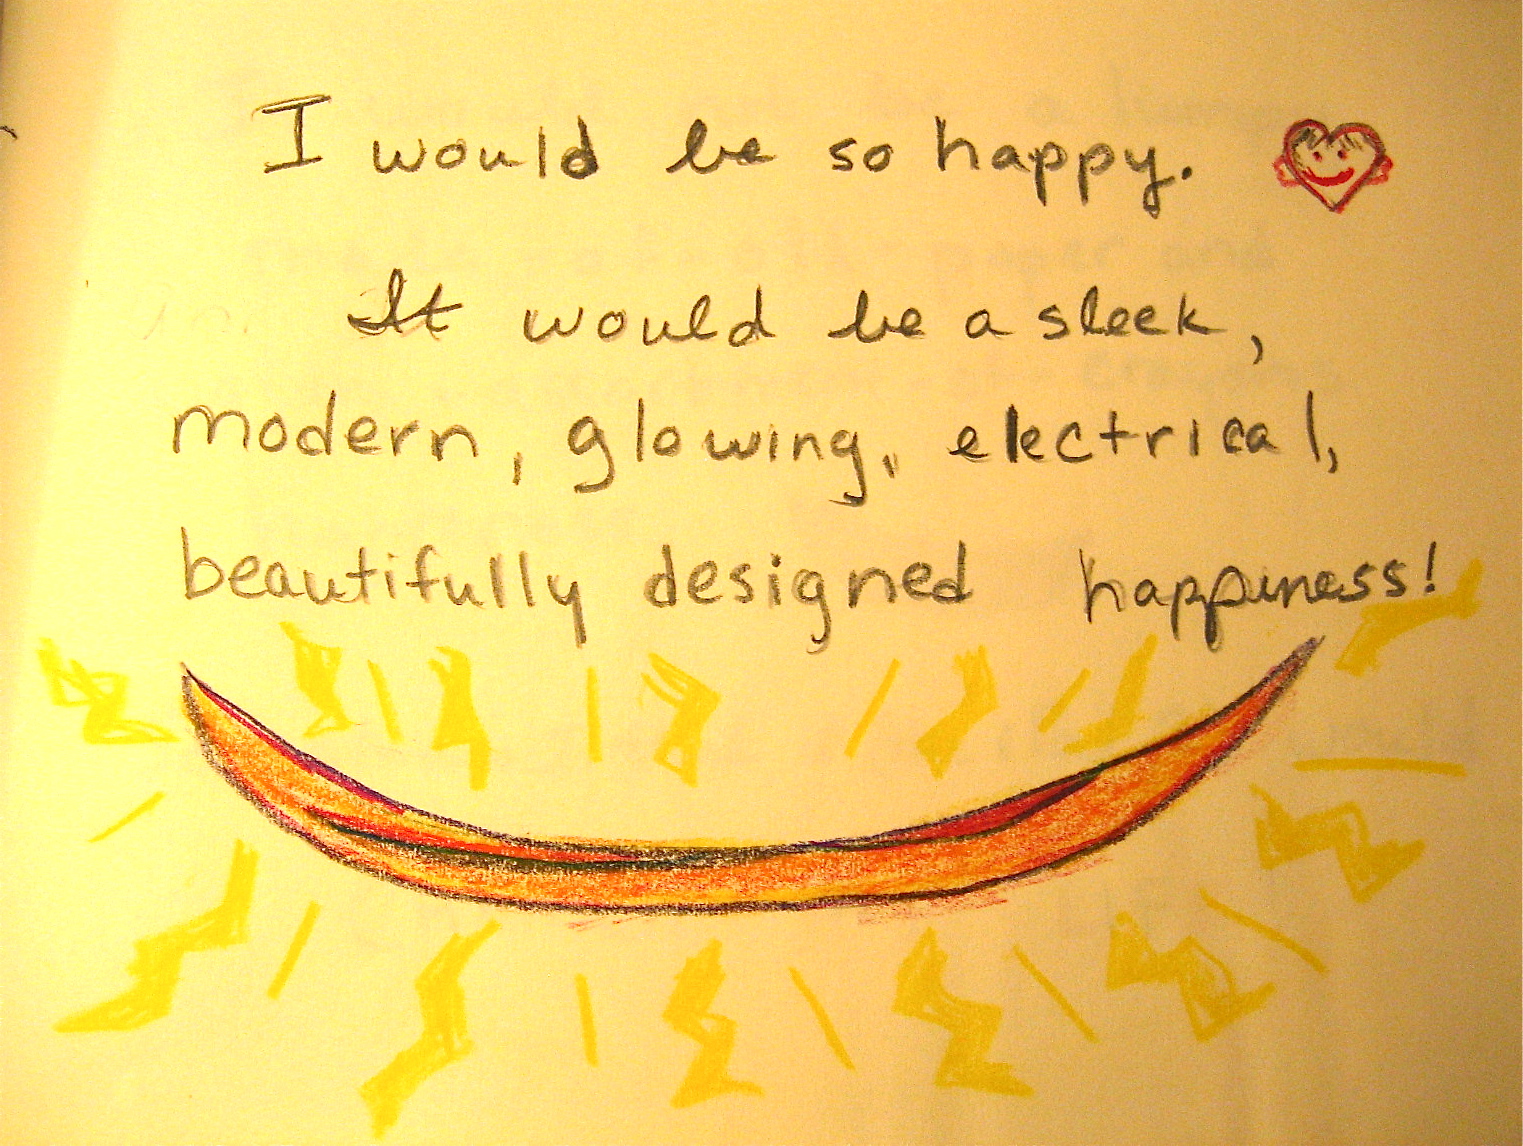 I would be so happy.
It would be a sleek,
modern, glowing, electrical,
beautifully designed happiness!